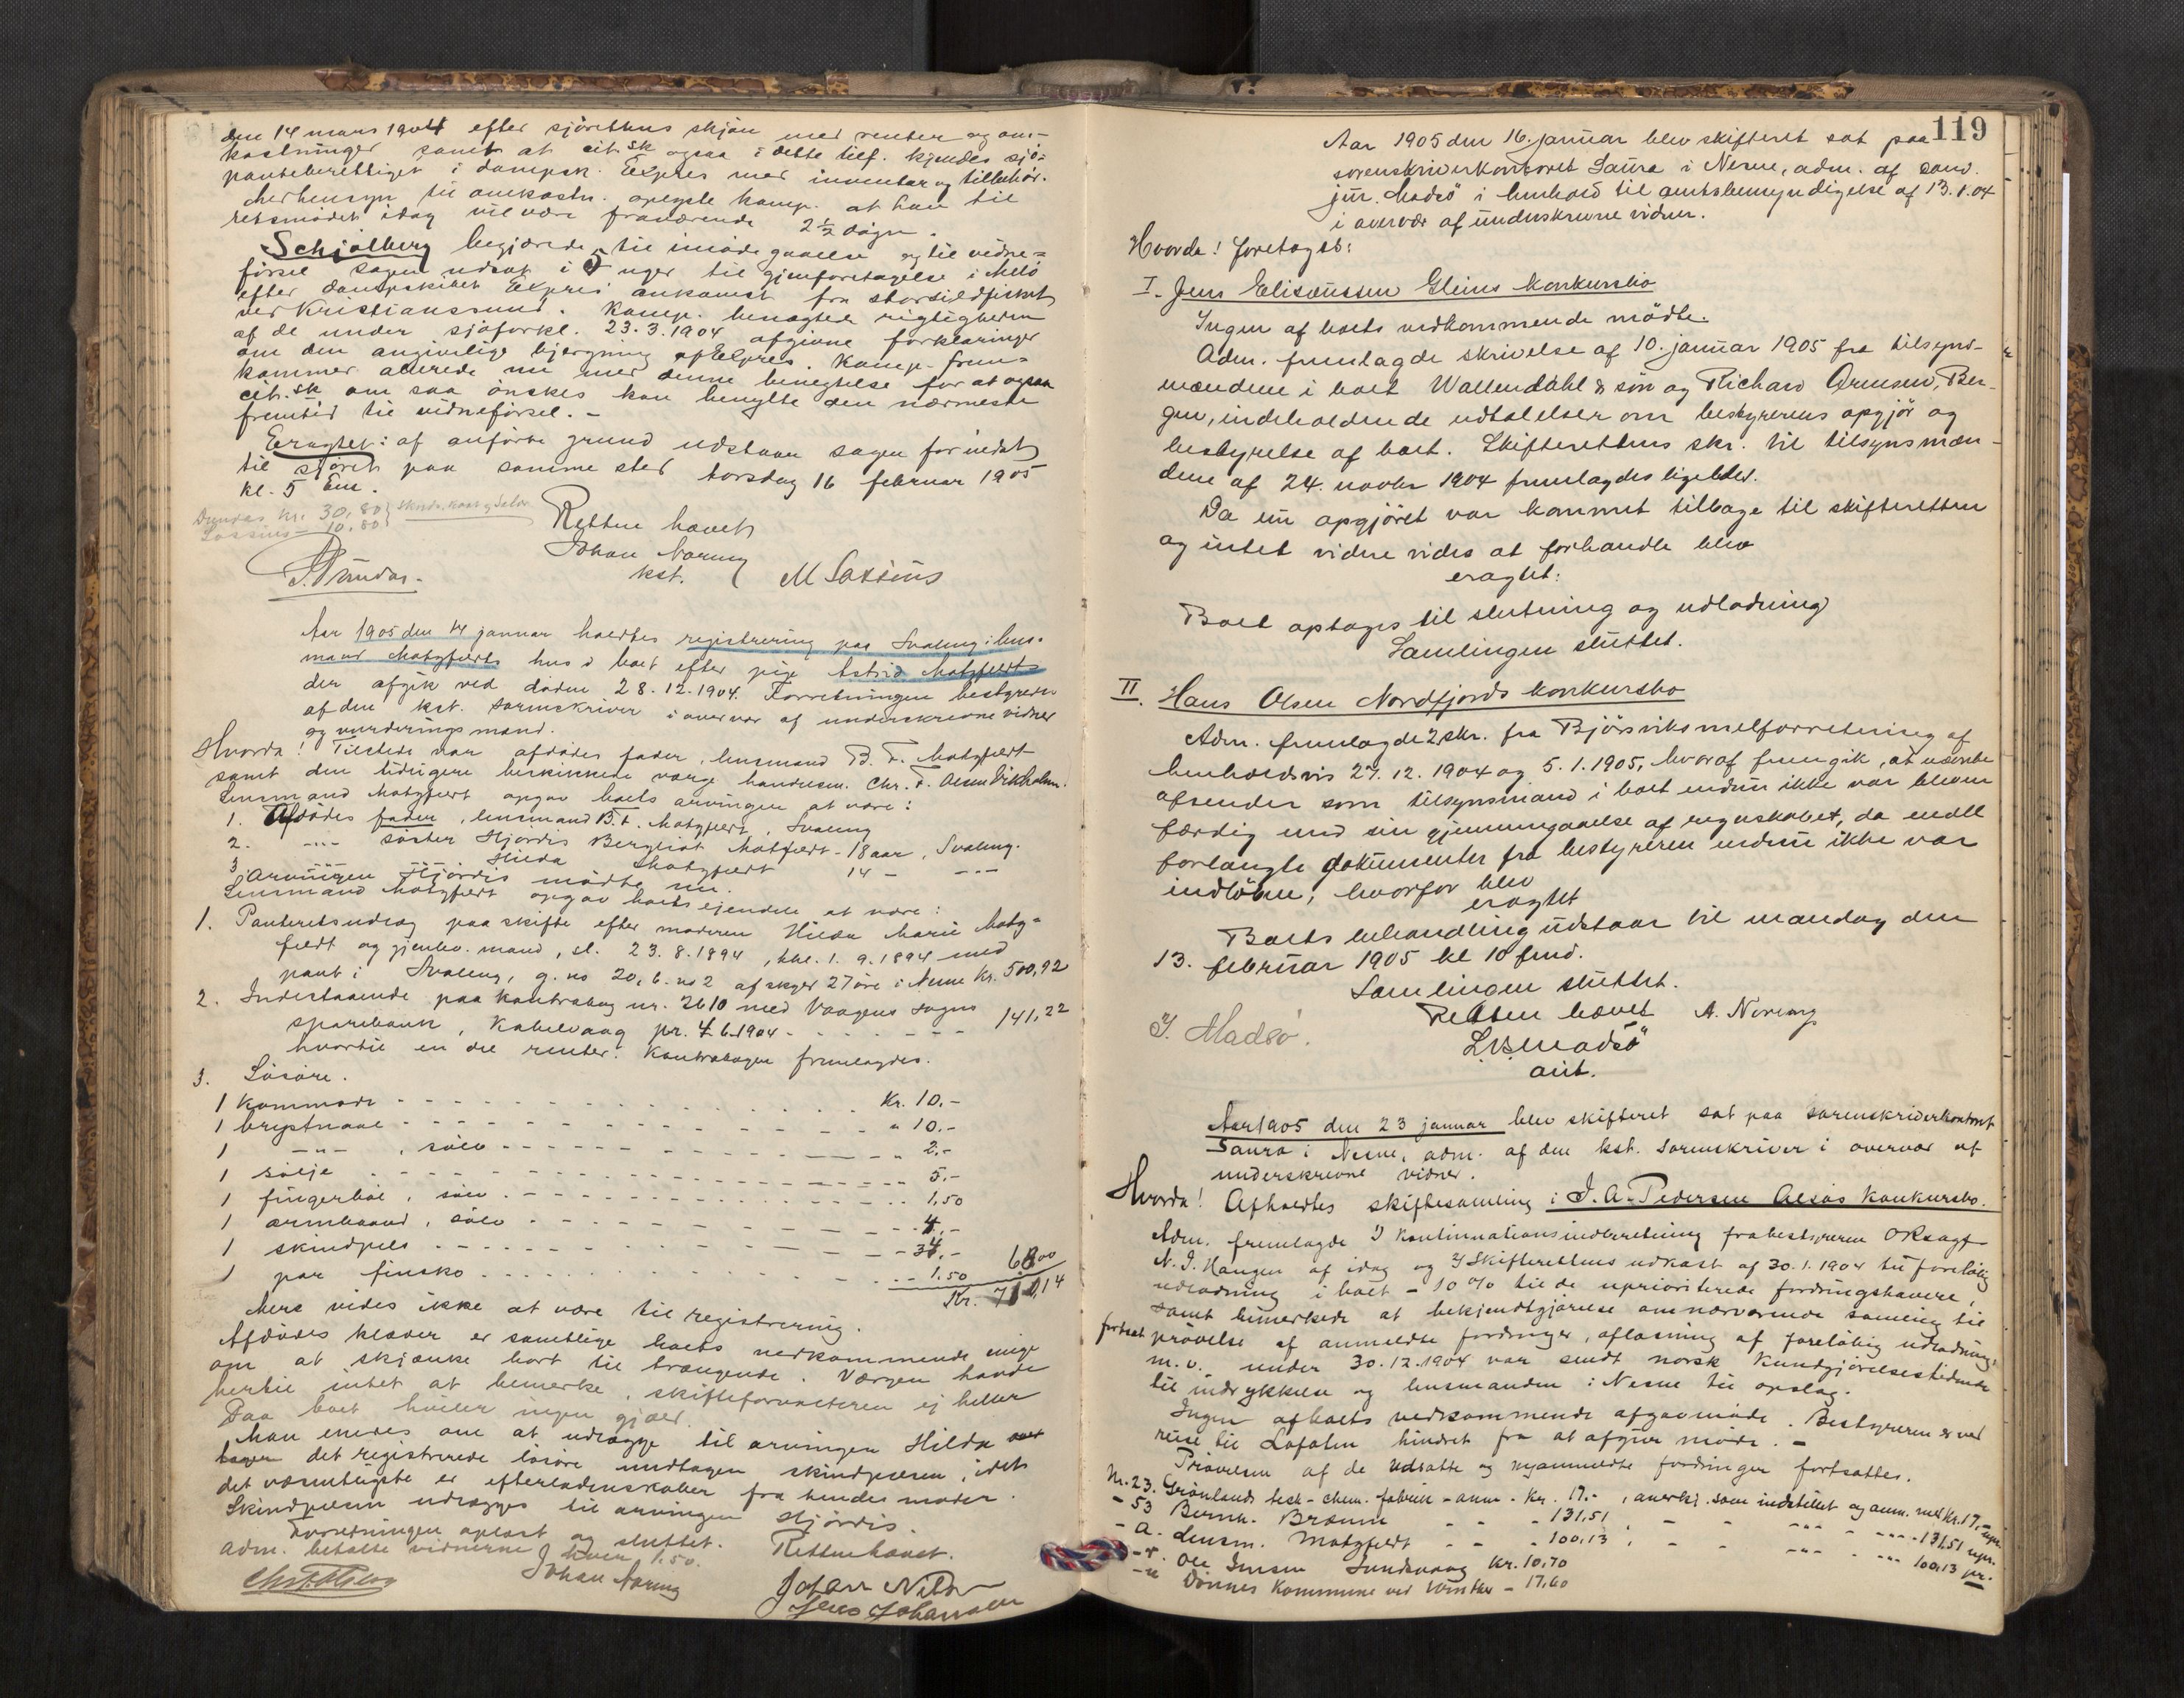 den 14 mars 1904 efter sjörettens skjön med renter og om-
kostninger samt at cit.sk ogsaa i dette tilf. kjendes sjö-
panteberettiget i dampsk. Expres med inventar og tilbehör.
Medhensyn til omkostn. opgyste komp. at han til
retsmödet idag vil være fraværende 2½ dögn.
Schjølberg begjærede til imödegaaelse og til vidne-
försel sagen udsat i 5 uger til gjenforetagelse i Melö
efter dampskibet Expres' ankomst fra storsildfisket
ved Kristianssund. Komp. benægtede rigtigheden
af de under sjöforkl. 23.3.1904 afgivne forklaringer
om den angivelige bjergning af Expres. Komp. frem-
kommer allerede nu med denne benegtelse for at ogsaa
cit.sk om saa önskes kan benytte den nærmeste
fremtid til vidneförsel. -
Eragtet: af anförte grund udstaar sagen forinden
til sjöret paa samme sted torsdag 16 februar 1905
kl. 5 Em.
Dundas kr. 30,80
Lassius - 10,80
Retten hævet
Johan Noring
kst.
Dundas.
M Lassius
Aar 1905 den 14 januar holdtes registrering paa Svaleng i lens-
mand Motzfeldts hus i boet efter pige Astrid Motzfeldt
der afgik ved döden 28.12.1904. Forretningen bestyredes
af den kst. sorenskriver i overvær af underskrevne vidner
og vurderingsmænd.
Hvorda! Tilstede var afdödes fader, lensmand B. F. Motzfeldt
samt den tidligere beskikkede værge handelsm. Chr. F. Olsen Vikholmen.
Lensmand Motzfeldt opgav boets arvinger at være:
1. Afdödes fader, lensmand B. F. Motzfeldt, Svaleng
2. -"- söster Hjördis Bergliot Motzfeldt - 18 aar, Svaleng.
3. -"- -"- Hilda Motzfeldt 14 - -"-
Arvingen Hjördis mödte nu.
Lensmand Motzfeldt opgav boets eiendele at være:
1. Panteretsudlæg paa skifte efter moderen Hilda Marie Motz-
feldt og gjenlev. mand, sl. 23.8.1894, thl. 1.9.1894 med
pant i Svaleng, g. no 20, b. no 2 af skyld 27 öre i Nesne Kr. 500,92
2. Indestaaende paa kontrabog nr. 2610 med Vaagens sogns
sparebank, Kabelvaag pr. 4.6.1904 - - - - 141,22
hvortil en del renter. Kontrabogen fremlagdes.
3. Lösöre.
1 kommode - - - - Kr. 10.-
1 brystnaal - - - - " 10.-
1 -"- , sölv - - - - " 2.-
1 sölje - - - - 5.-
1 fingerböl, sölv - - - - 1,50
1 armbaand, sölv - - - - 4,-
1 skindpels - - - - 34,-
1 par finsko - - - - 1.50 68.00
Kr. 710,14
Mere vides ikke at være til registrering.
Afdödes klæder er samtlige boets vedkommende enige
om at skjænke bort til trængende. Værgen havde
hertil intet at bemerke, skifteforvalteren ej heller
Paa boet hviler ingen gjæld.
Man enedes om at udlægge til arvingen Hilda
det registrerede lösöre undtagen skindpelsen, idet
det væsentligste er efterladenskaber fra hendes moder.
Skindpelsen udlægges til arvingen Hjördis.
Forretningen oplæst og sluttet.
Adm. betalte vidnerne hver 1.50. Retten hævet.
Johan Noring
Chr. F. Olsen
Johan Nilsen
Jens Johansen
119
Aar 1905 den 16. januar blev skifteret sat paa
sorenskriverkontoret Saura i Nesne, adm. af cand.
jur. Madsö i henhold til amtsbemyndigelse af 13.1.04
i overvær af underskrevne vidner.
Hvorda! foretoges:
I. Jens Elisæussen Gleins konkursbo
Ingen af boets vedkommende mödte.
Adm. fremlagde skrivelse af 10. januar 1905 fra tilsyns-
mændene i boet Wallendahl & sön og Richard Arnesen, Ber-
gen, indeholdende udtalelser om bestyrerens opgjör og
bestyrelse af boet. Skifterettens skr. til tilsynsmæn-
dene af 24. novbr 1904 fremlagdes ligeledes.
Da nu opgjöret var kommet tilbage til skifteretten
og intet videre vides at forhandle blev
eragtet:
Boet optages til slutning og udlodning
Samlingen sluttet.
II. Hans Olsen Nordfjords konkursbo
Adm. fremlagde 2 skr. fra Bjørsviks melforretning af
henholdsvis 27.12.1904 og 5.1.1905, hvoraf fremgik, at nævnte
afsender som tilsynsmand i boet endnu ikke var bleven
færdig med sin gjennemgaaelse af regnskabet, da endel
forlangte dokumenter fra bestyreren endnu ikke var
indlöbne, hvorfor blev
eragtet
Boets behandling udstaar til mandag den
13. februar 1905 kl 10 fmd.
Samlingen sluttet.
Retten hævet A. Noring
J. Madsö.
L. B. Madsö
aut.
Aar 1905 den 23 januar blev skifteret sat paa sorenskriverkontoret
Saura i Nesne, adm. af den kst. sorenskriver i overvær af
underskrevne vidner.
Hvorda! Afholdtes skiftesamling i J. A. Pedersen Alsos konkursbo.
Adm. fremlagde 1) kontinuationsindberetning fra bestyreren Oksagf.
N. J. Haugen af idag og 2) Skifterettens udkast af 30.1.1904 til forelöbig
udlodning i boet - 10 % til de uprioriterede fordringshavere,
samt bemerkede at bekjendtgjörelse om nærværende samling til
fortsat prövelse af anmeldte fordringer, aflæsning af forelöbig udlodning
m.v. under 30.12.1904 var sendt norsk Kundgjörelsestidende
til indrykkelse og lensmanden i Nesne til opslag.
Ingen af boets vedkommende afgav möde. Bestyreren er ved
reise til Lofoten hindret fra at afgive möde. -
Prövelsen af de udsatte og nyanmeldte fordringer fortsattes.
Nr. 23. Grönlands tesk-chem. fabrik - anm. Kr. 17.-, anerkj. som indstillet og anm. med Kr. 17,- upr.
- 53 Bernh. Brænne - - - 131,51, - - -"- - -"- 131,51 upr.
- a. Lensm. Motzfeldt - - - 100,13, - - -"- - -"- 100,13 pr.
- r. Ole Jensen Sundsvaag Kr. 10,70
- u Dönnes Kommune ved - 17,60